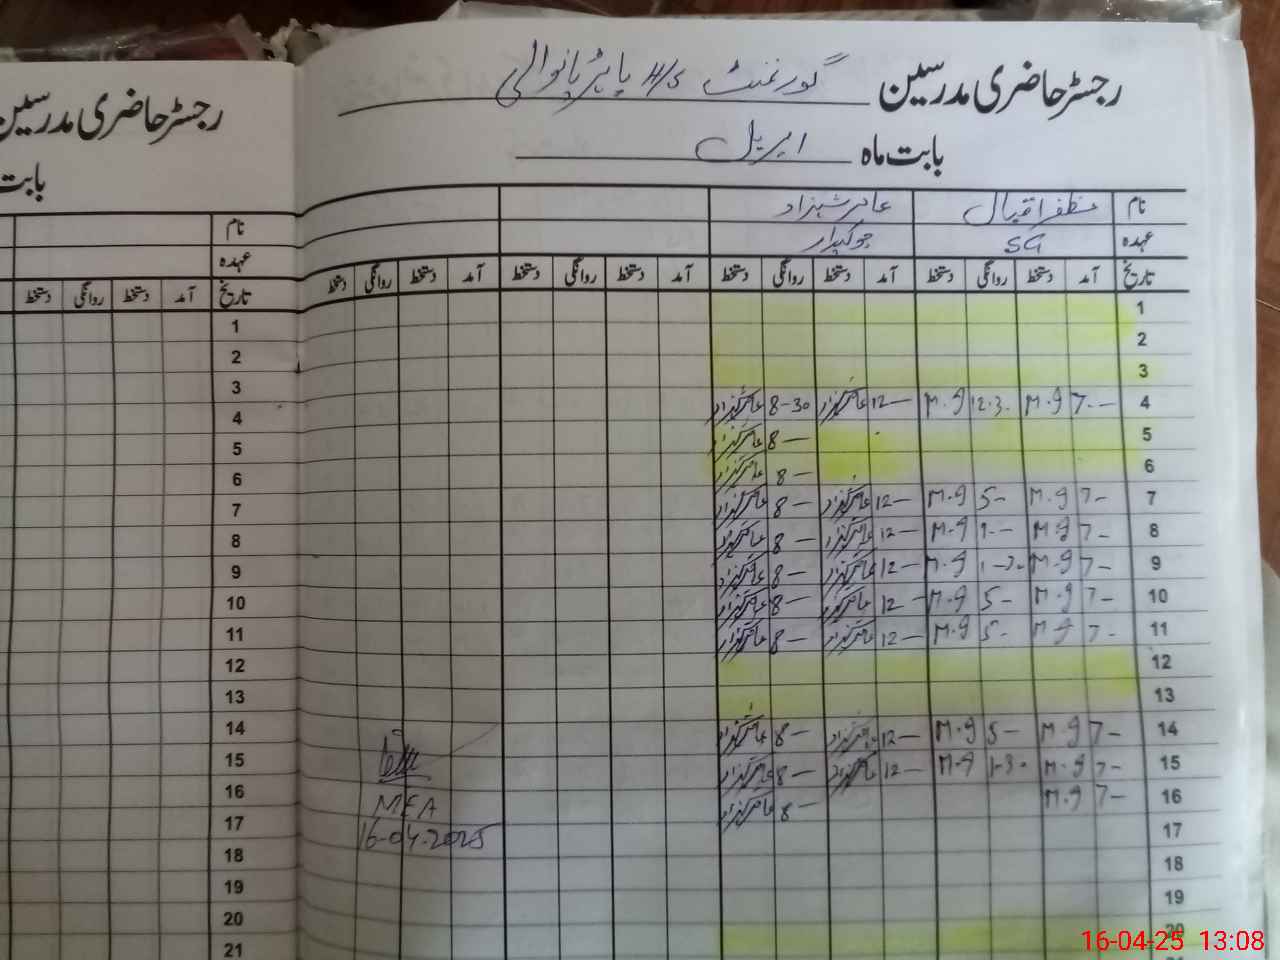 رجسٹر حاضری مدرسین گورنمنٹ H/S پاہڑیانوالی
بابت ماہ اپریل
نام مظفر اقبال عامر شہزاد
عہدہ SG چوکیدار
تاریخ آمد دستخط روانگی دستخط آمد دستخط روانگی دستخط آمد دستخط روانگی دستخط آمد دستخط روانگی دستخط
1
2
3
4 7-- M.I 12.3. M.I 12- عامر شہزاد 8-30 عامر شہزاد
5 8- عامر شہزاد
6 8- عامر شہزاد
7 7- M.I 5- M.I 12- عامر شہزاد 8- عامر شہزاد
8 7- M.I 1-- M.I 12- عامر شہزاد 8- عامر شہزاد
9 7- M.I 1-3. M.I 12- عامر شہزاد 8- عامر شہزاد
10 7- M.I 5- M.I 12- عامر شہزاد 8- عامر شہزاد
11 7- M.I 5- M.I 12- عامر شہزاد 8- عامر شہزاد
12
13
14 7- M.I 5- M.I 12- عامر شہزاد 8- عامر شہزاد
15 7- M.I 1-3. M.I 12- عامر شہزاد 8- عامر شہزاد
16 7- M.I 8- عامر شہزاد
MEA
17
16-04-2025
18
19
20
رجسٹر حاضری مدرسین
بابت
نام
عہدہ
تاریخ آمد دستخط روانگی دستخط
1
2
3
4
5
6
7
8
9
10
11
12
13
14
15
16
17
18
19
20
21
16-04-25 13:08